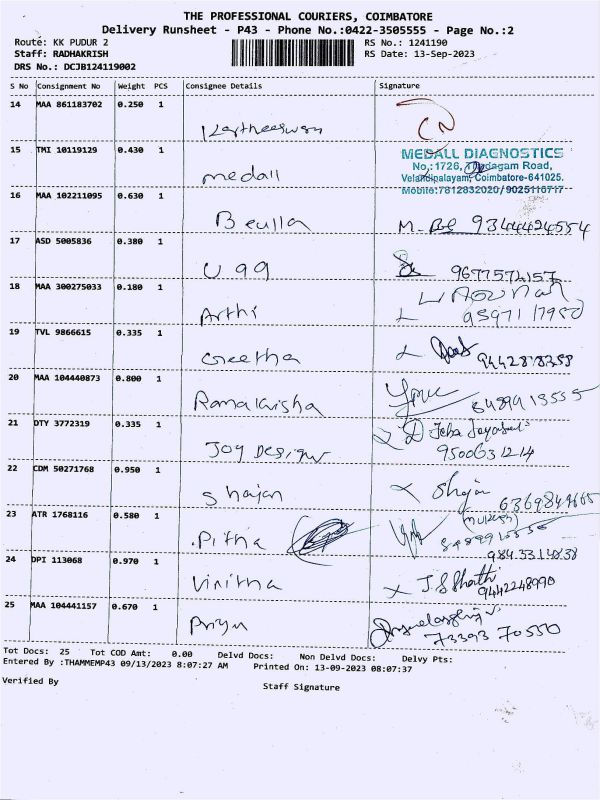 THE PROFESSIONAL COURIERS, COIMBATORE
Delivery Runsheet - P43 - Phone No.:0422-3505555 - Page No.:2
Route: KK PUDUR 2 RS No.: 1241190
Staff: RADHAKRISH RS Date: 13-Sep-2023
DRS No.: DCJB124119002
S No Consignment No Weight PCS Consignee Details Signature
14 MAA 861183702 0.250 1
Kartheeswan CN
15 TMI 10119129 0.430 1
medall
MEDALL DIAGNOSTICS
No.:1726, Thadagam Road,
Velandipalayam, Coimbatore-641025.
Mobile:7812832020/9025116717
16 MAA 102211095 0.630 1
Beulla 9344424554
17 ASD 5005836 0.380 1
U99 9677572157
18 MAA 300275033 0.180 1
Arthi
19 TVL 9866615 0.335 1
Geetha
20 MAA 104440873 0.800 1
Ramakrisha
21 DTY 3772319 0.335 1
Joy Design 9500631214
22 CDM 50271768 0.950 1
Shajan Shajan
23 ATR 1768116 0.580 1
Pitha
24 DPI 113068 0.970 1
Vinitha 9442248990
25 MAA 104441157 0.670 1
Priya 73393 70550
Tot Docs: 25 Tot COD Amt: 0.00 Delvd Docs: Non Delvd Docs: Delvy Pts:
Entered By :THAMMEMP43 09/13/2023 8:07:27 AM Printed On: 13-09-2023 08:07:37
Verified By
Staff Signature